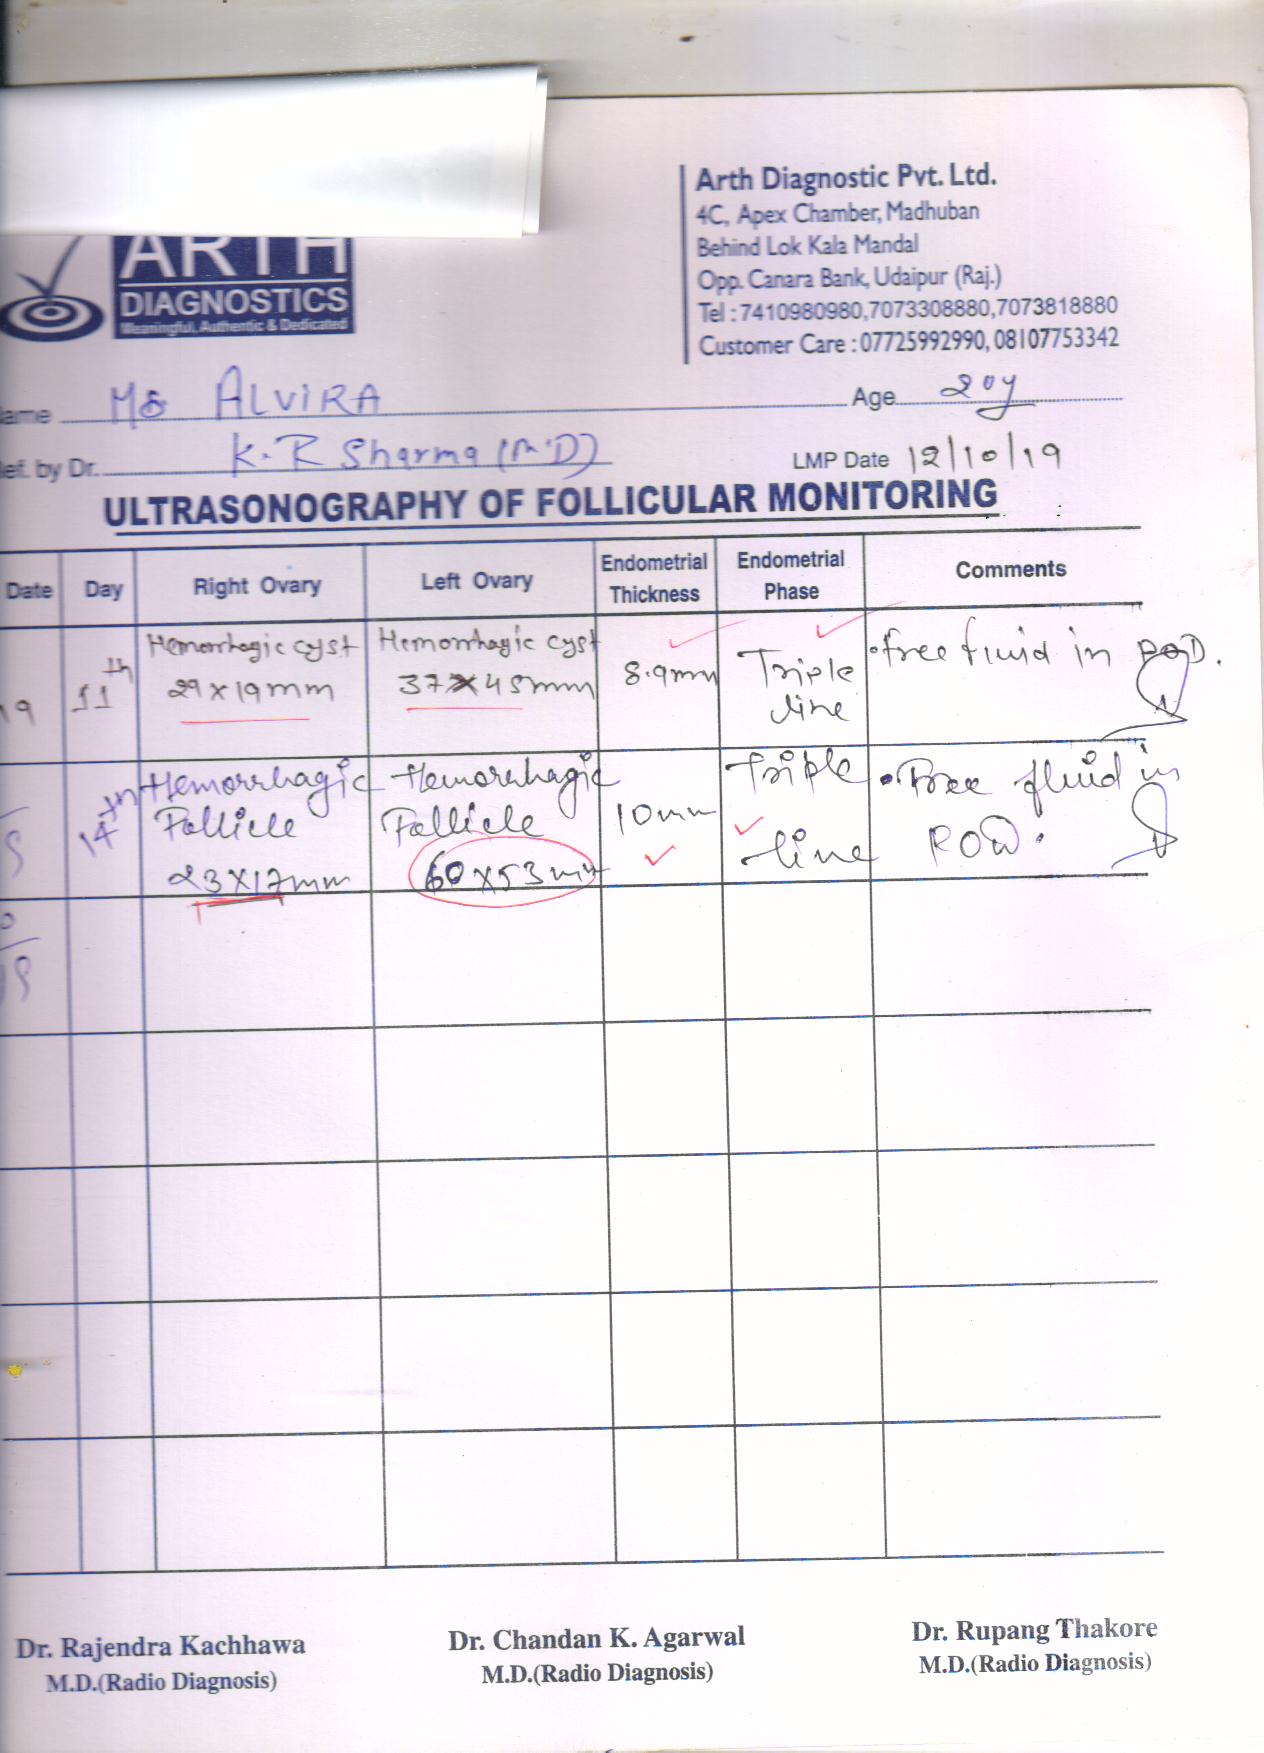 Arth Diagnostic Pvt. Ltd.
4C, Apex Chamber, Madhuban
Behind Lok Kala Mandal
Opp. Canara Bank, Udaipur (Raj.)
Tel : 7410980980,7073308880,7073818880
Customer Care : 07725992990, 08107753342
ARTH
DIAGNOSTICS
Meaningful, Authentic & Dedicated
ame Ms ALVIRA Age 20y
ef. by Dr. K.R Sharma (M.D) LMP Date 12/10/19
ULTRASONOGRAPHY OF FOLLICULAR MONITORING
Date Day Right Ovary Left Ovary Endometrial Thickness Endometrial Phase Comments
19 11th Hemorrhagic cyst 29 x 19mm Hemorrhagic cyst 37 x 45mm 8.9mm Triple line • free fluid in POD.
14th Hemorrhagic Follicle 23 x 17mm Hemorrhagic Follicle 60 x 53mm 10mm Triple line • Free fluid in POD.
Dr. Rajendra Kachhawa
M.D.(Radio Diagnosis)
Dr. Chandan K. Agarwal
M.D.(Radio Diagnosis)
Dr. Rupang Thakore
M.D.(Radio Diagnosis)